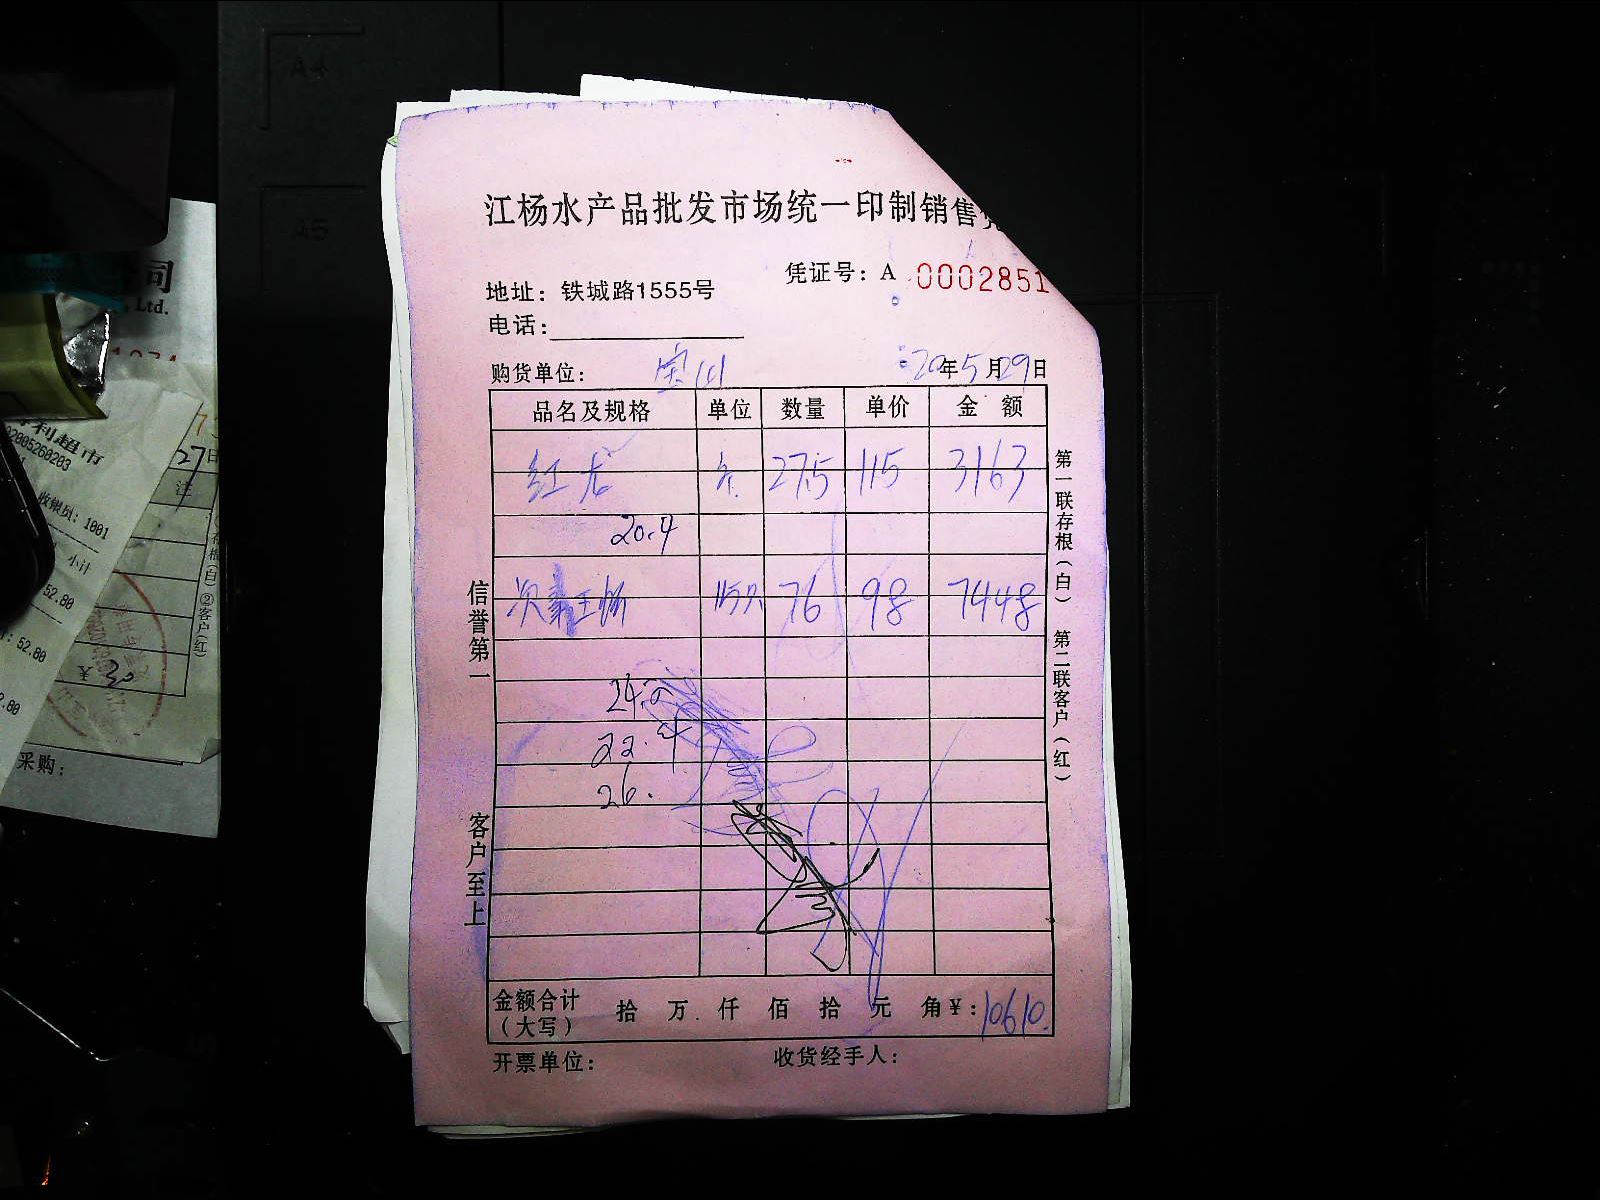 江杨水产品批发市场统一印制销售凭
凭证号：A 0002851
地址：铁城路1555号
电话：
购货单位： 宝山 20年5月29日
品名及规格 单位 数量 单价 金 额
红龙 27.5 115 3163
20.4
76 98 7448
24.
22.4
26.
金额合计（大写） 拾 万 仟 佰 拾 元 角￥：10610.
开票单位： 收货经手人：
信誉第一
客户至上
第一联存根（白）
第二联客户（红）
A4
A5
同
, Ltd.
利超市
02005260203
收银员：1001
小计
52.80
52.80
2.80
27日
注
②客户(红)
采购：